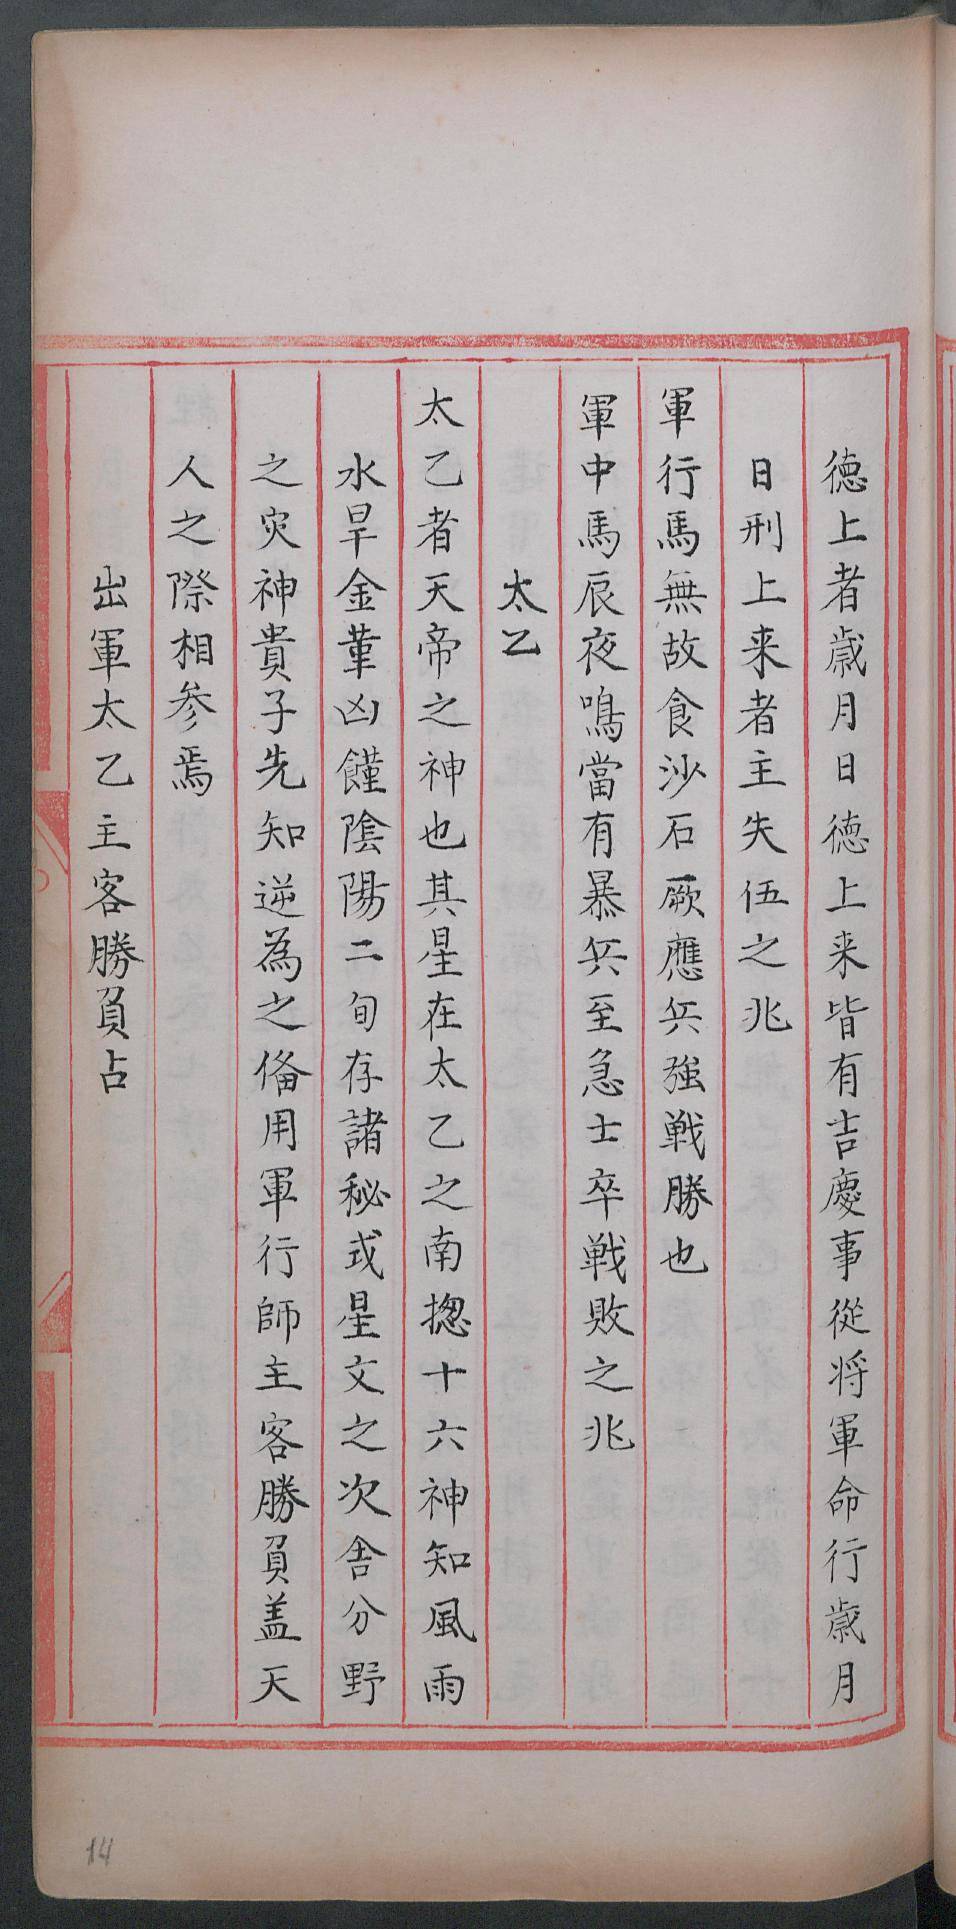 徳上者歳月日徳上来皆有吉慶事從将軍命行歳月
日刑上来者主失伍之兆
軍行馬無故食沙石厥應兵強戦勝也
軍中馬辰夜鳴當有暴兵至急士卒戦敗之兆
太乙
太乙者天帝之神也其星在太乙之南揔十六神知風雨
水旱金革凶饉陰陽二旬存諸秘式星文之次舎分野
之灾神貴子先知逆為之俻用軍行師主客勝負盖天
人之際相参焉
出軍太乙主客勝負占
14